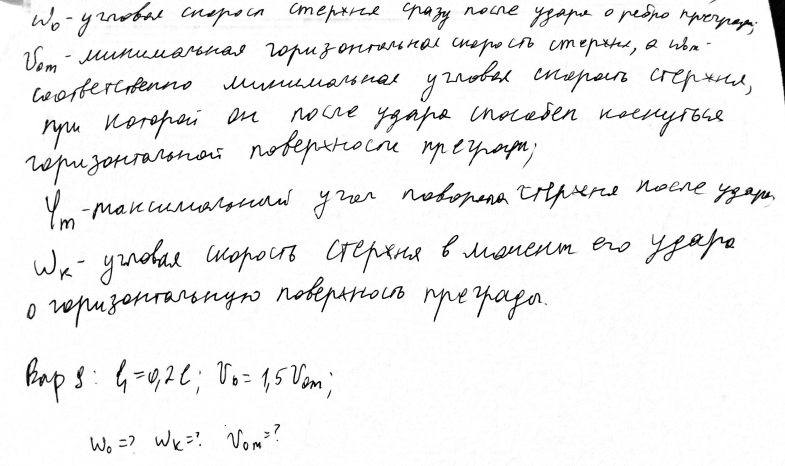 ω₀ - угловая скорость стержня сразу после удара о ребро преграды;
V₀ₘ - минимальная горизонтальная скорость стержня, а ω₀ₘ -
соответственно минимальная угловая скорость стержня,
при которой он после удара способен коснуться
горизонтальной поверхности преграды;
φₘ - максимальный угол поворота стержня после удара,
ωₖ - угловая скорость стержня в момент его удара
о горизонтальную поверхность преграды.
Вар 9: l₁ = 0,2l; V₀ = 1,5V₀ₘ;
ω₀ = ? ωₖ = ? V₀ₘ = ?